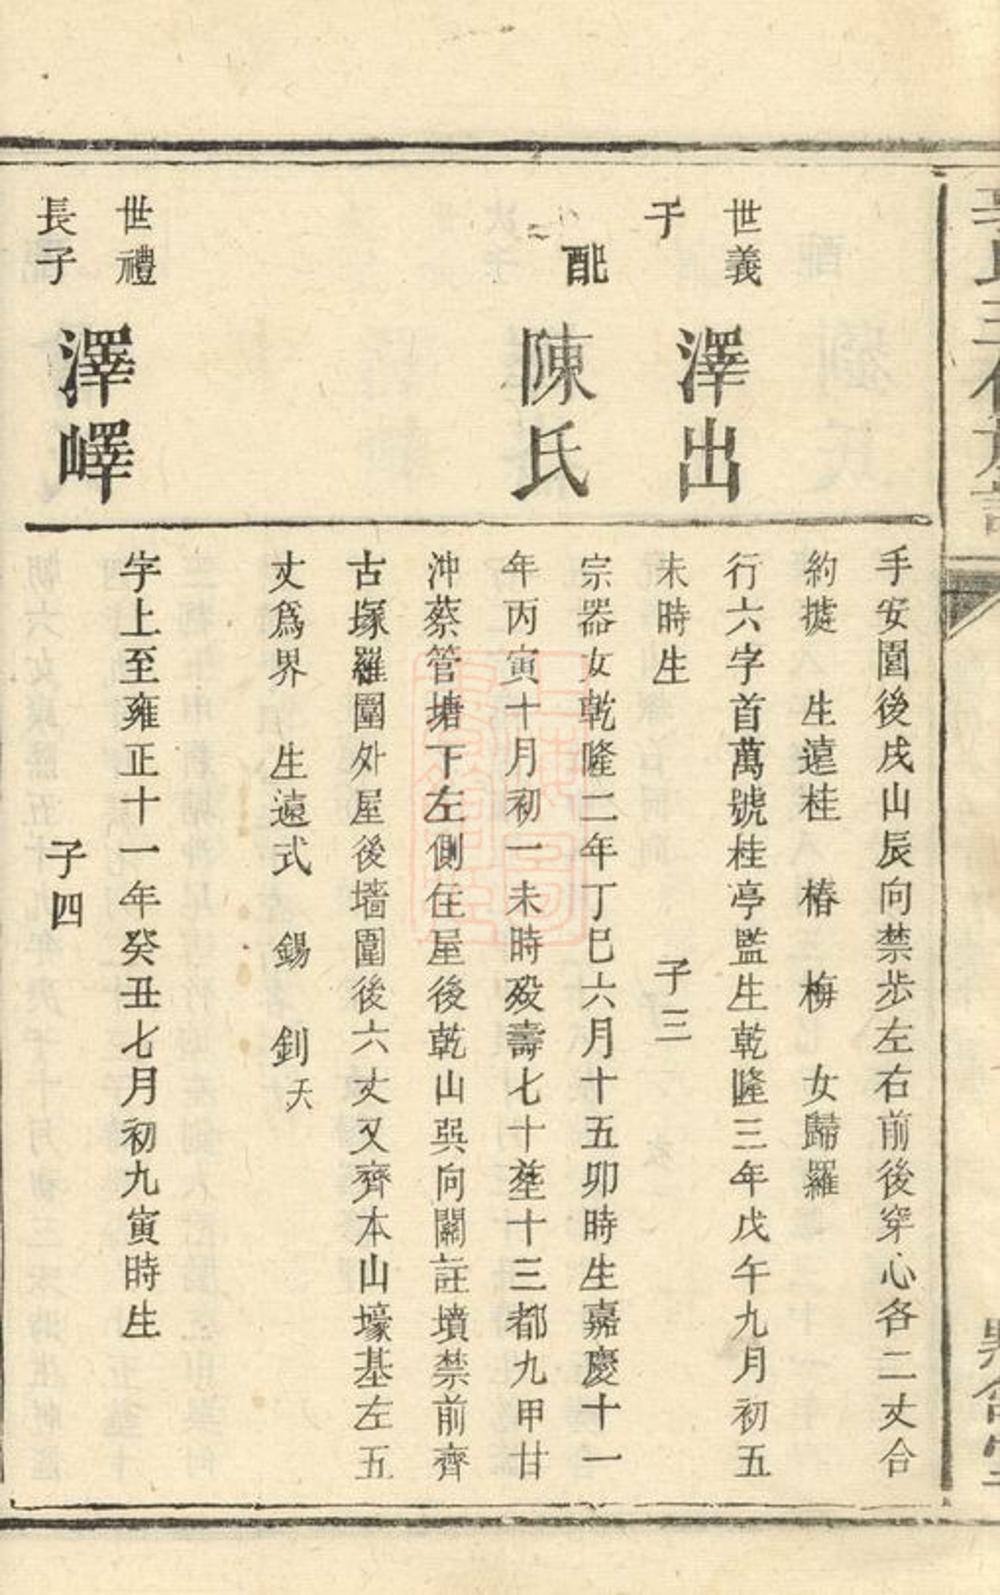 手安園後戌山辰向禁步左右前後穿心各二丈合
約㨿　生遠桂　椿　梅　女歸羅
世義
子
澤出
行六字首萬號桂亭監生乾隆三年戊午九月初五
未時生　子三
配
陳氏
宗器女乾隆二年丁巳六月十五卯時生嘉慶十一
年丙寅十月初一未時殁壽七十塟十三都九甲甘
沖蔡管塘下左側住屋後乾山巽向關註墳禁前齊
古塚羅圍外屋後墻圍後六丈又齊本山壕基左五
丈爲界　生遠式　錫　釗夭
世禮
長子
澤嶧
字上至雍正十一年癸丑七月初九寅時生
子四